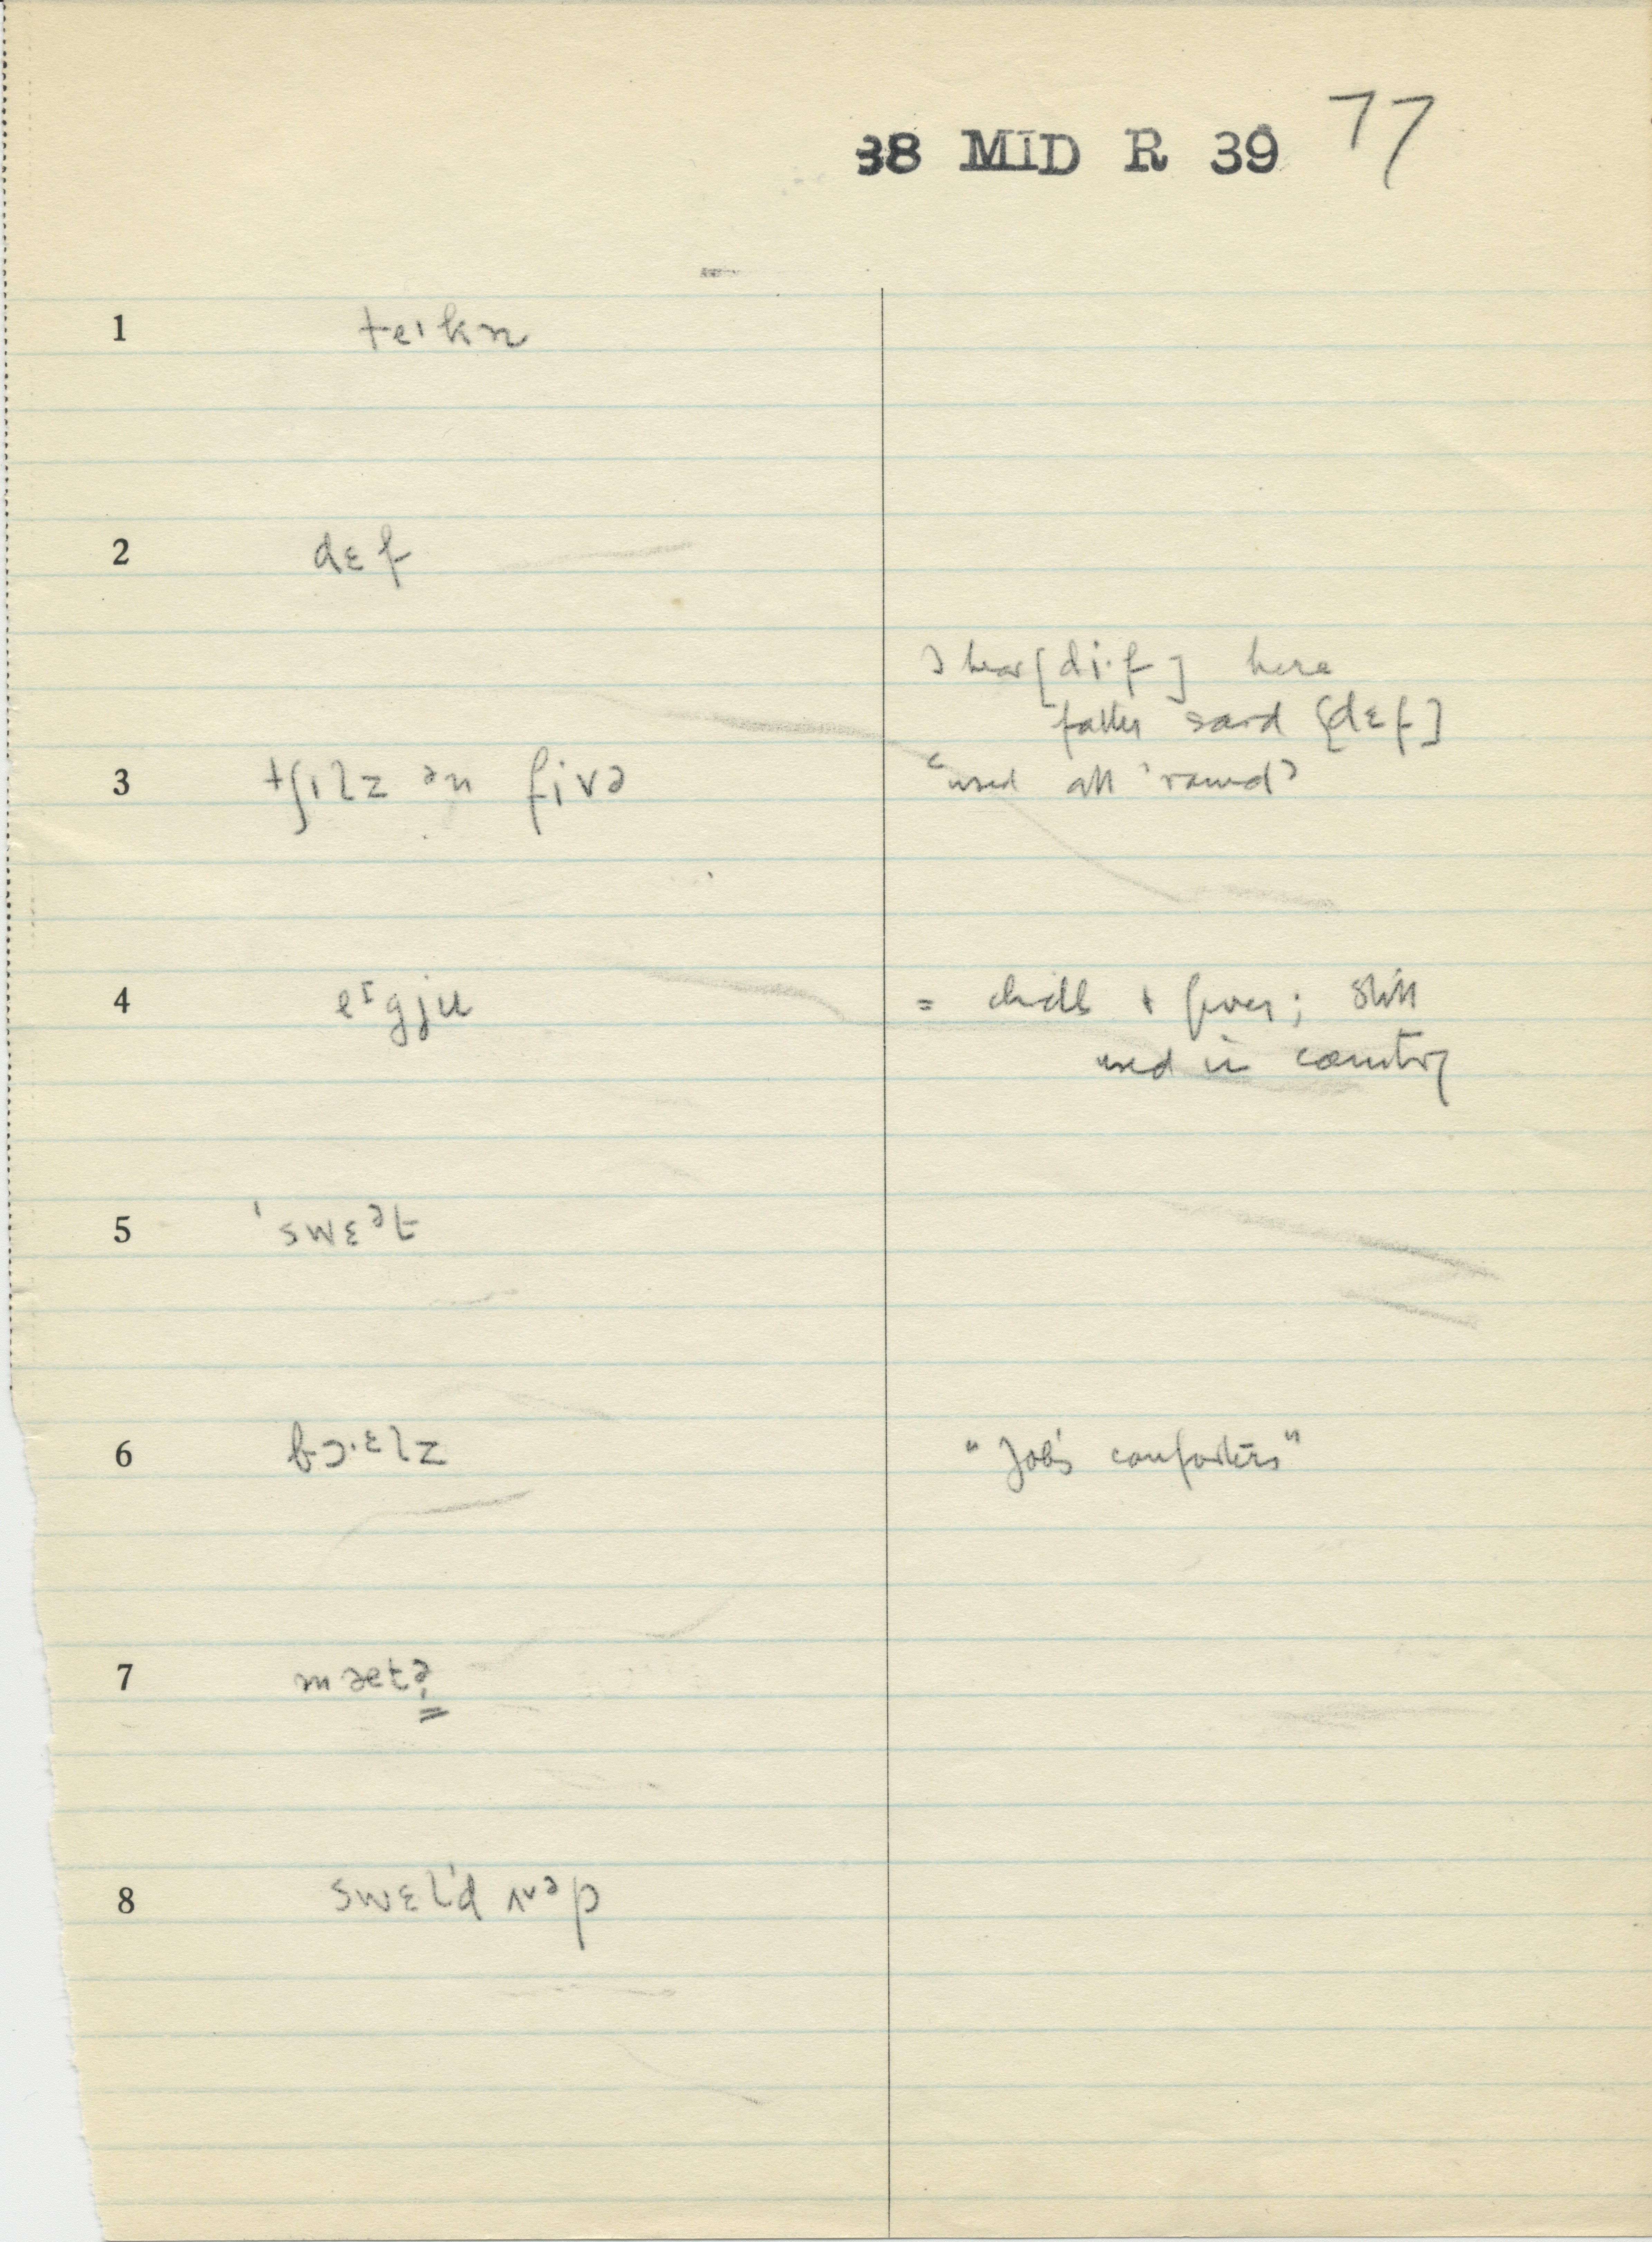 38 MID R 39 77
1 teɪkn
2 dɛf
I hear [di·f] here
father said [dɛf]
3 tʃɪlz ən fivə "used all 'round"
4 eɪgju = chills + fever; still
used in country
5 'swɛət
6 bɔ·ɛlz "Job's comforters"
7 mætə
8 swɛl'd ʌvəp